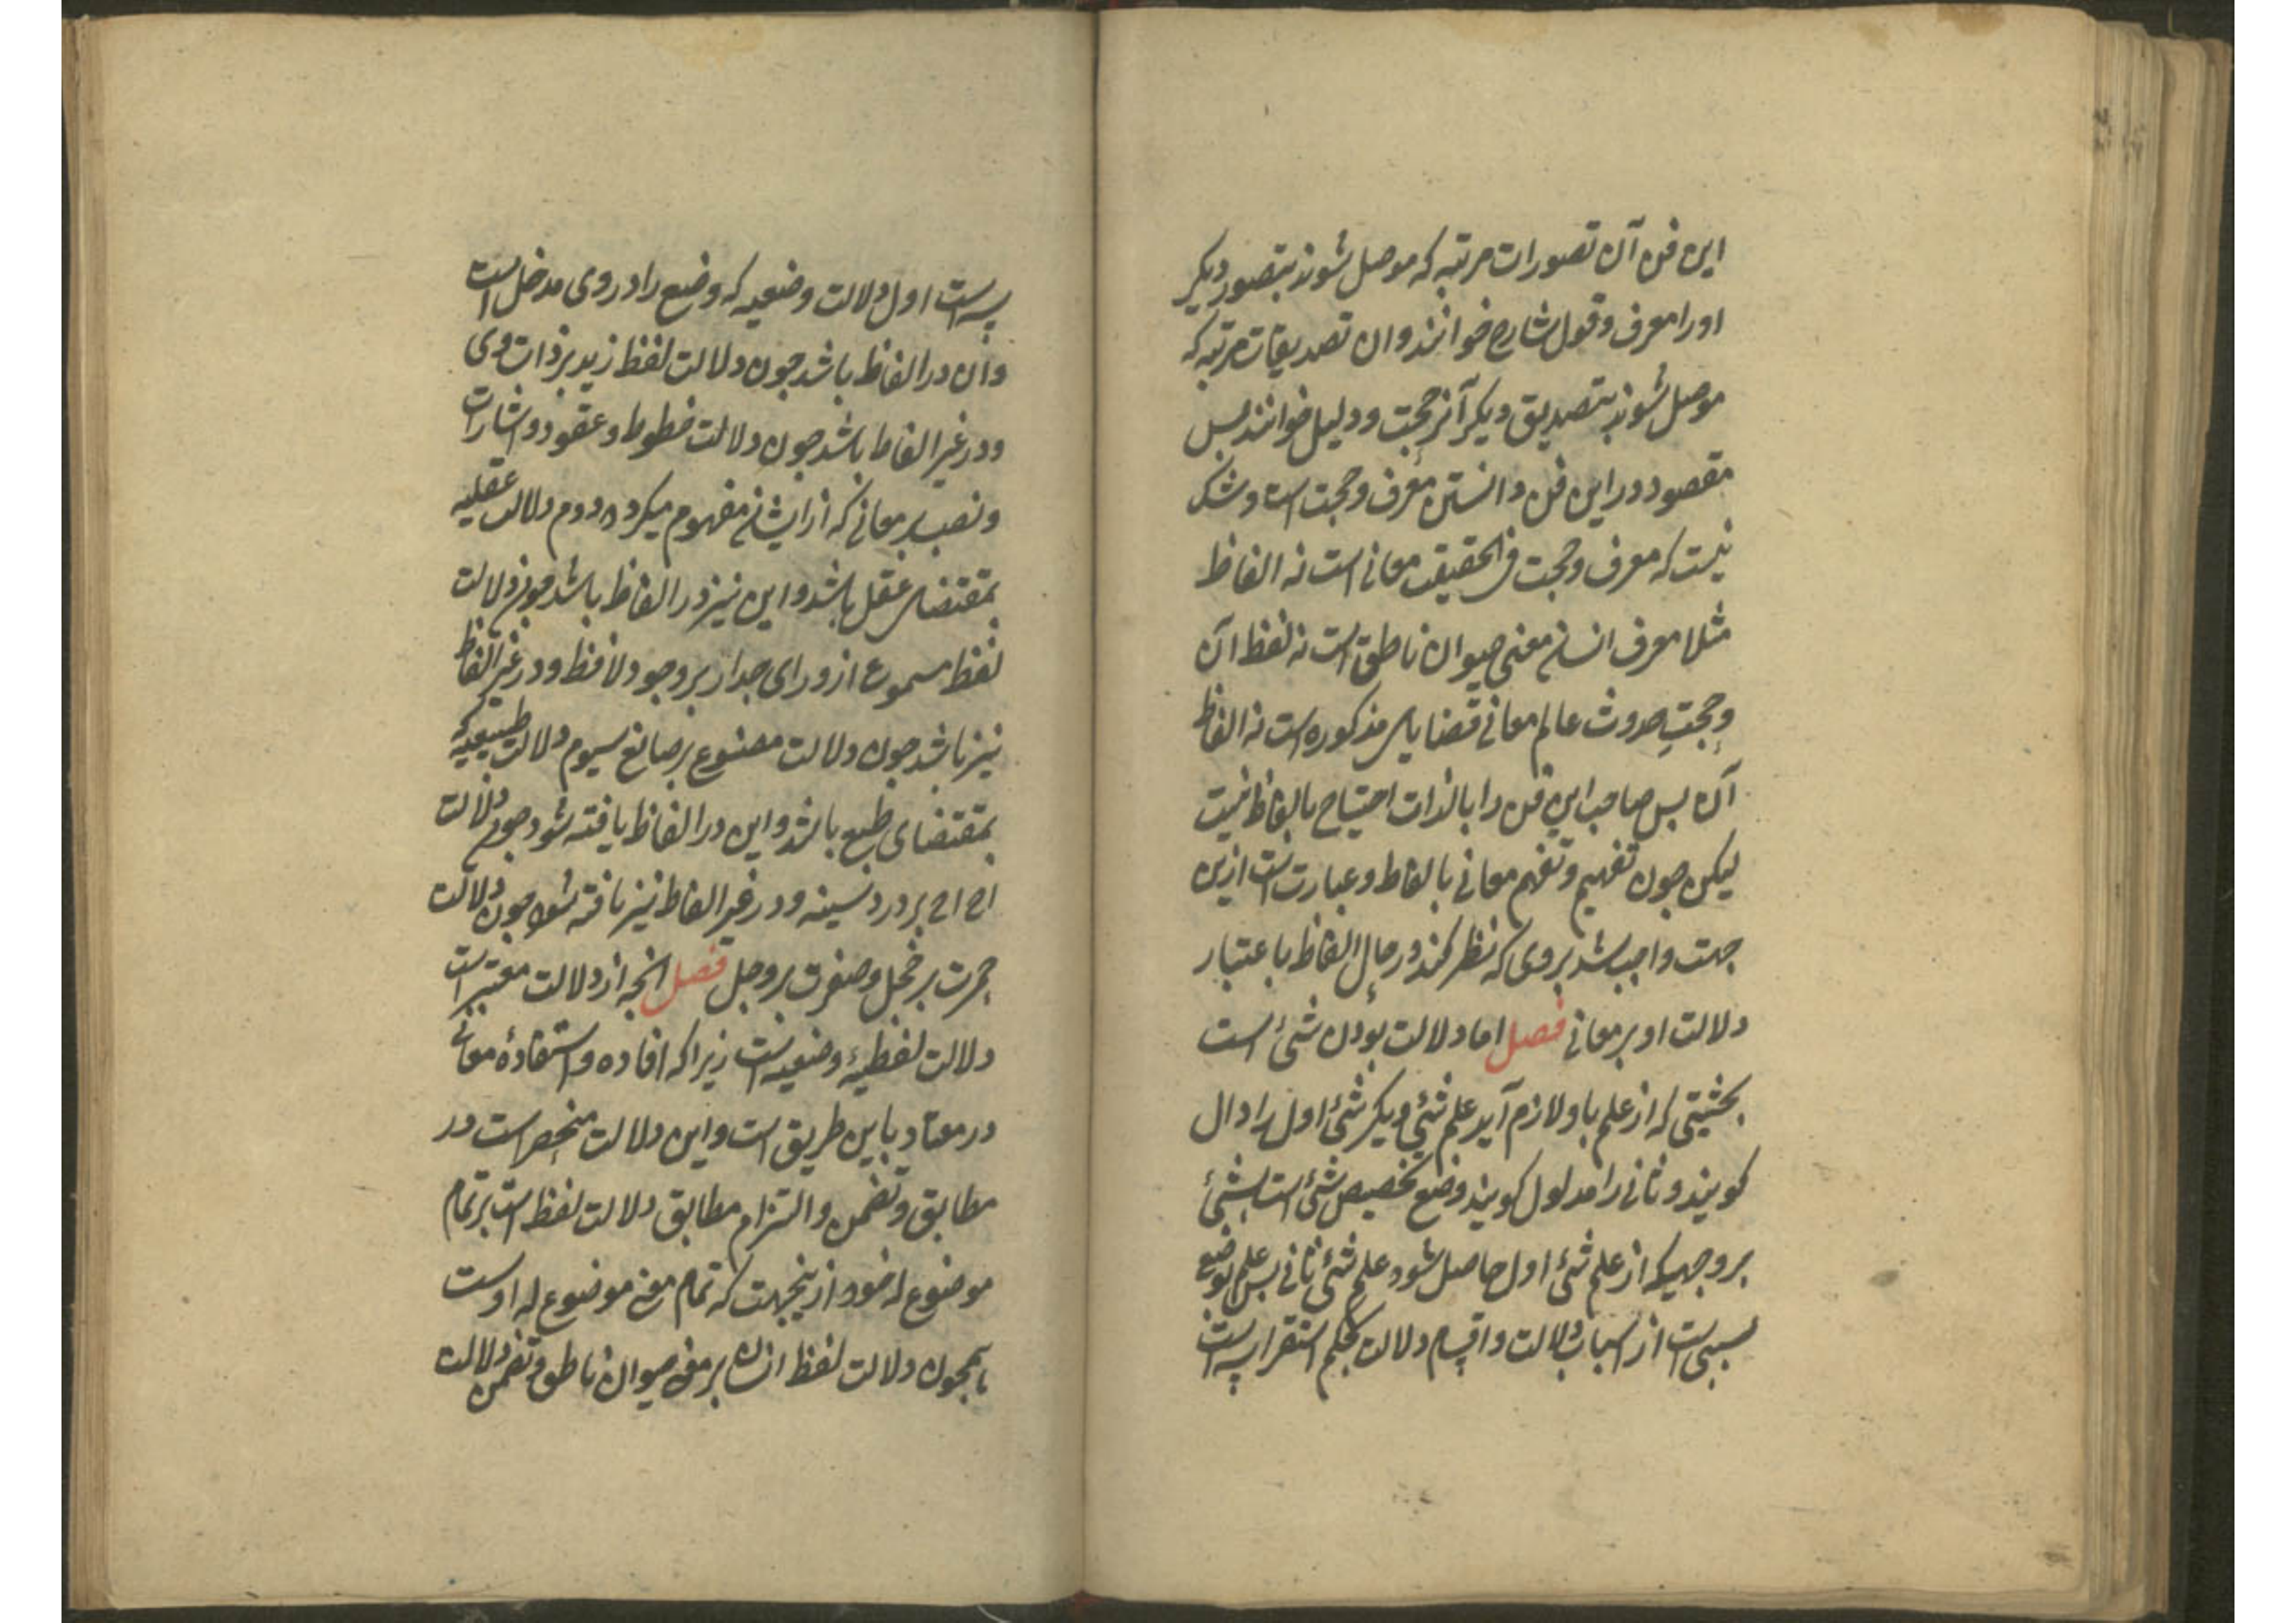 این فن آن تصورات مرتبه که موصل شوند بتصور دیکر
او را معرف و قول شارح خوانند و ان تصدیقات مرتبه که
موصل شوند بتصدیق دیکر آنرا حجت و دلیل خوانند بس
مقصود در این فن دانستن معرف و حجت است و شک
نیست که معرف و حجت فی الحقیقت معانی است نه الفاظ
مثلا معرف انسان معنی حیوان ناطق است نه لفظ آن
و حجت حدوث عالم معانی قضایای مذکوره است نه الفاظ
آن بس صاحب این فن را بالذات احتیاج بالفاظ نیست
لیکن جون تفهیم و تفهم معانی بالفاظ و عبارت است ازین
جهت واجب شد بروی که نظر کند در حال الفاظ باعتبار
دلالت او بر معانی فصل اما دلالت بودن شیٔ است
بحثیتی که از علم باو لازم آید علم شیٔ دیکر شیٔ اول را دال
کویند و ثانی را مدلول کویند وضع تخصیص شیٔ است بشیٔ
بر وجهیکه از علم شیٔ اول حاصل شود علم شیٔ ثانی بس علم بوضع
سببی است از اسباب دلالت و اقسام دلالت بحکم استقرا سه است
سه است اول دلالت وضعیه که وضع را در وی مدخل است
و ان در الفاظ باشد جون دلالت لفظ زید بر ذات وی
و در غیر الفاظ باشد جون دلالت خطوط و عقود و اشارات
و نصب بر معانی که از ایشان مفهوم میکردد دوم دلالت عقلیه
بمقتضای عقل باشد و این نیز در الفاظ باشد جون دلالت
لفظ مسموع از ورای جدار بر وجود لافظ و در غیر الفاظ
نیز باشد جون دلالت مصنوع بر صانع سیوم دلالت طبیعیه که
بمقتضای طبع باشد و این در الفاظ یافته شود جون دلالت
اح اح بر درد سینه و در غیر الفاظ نیز یافته شود جون دلالت
حمرت بر خجل و صفرت بر وجل فصل انجه از دلالت معتبر است
دلالت لفظیهٔ وضعیه است زیرا که افاده و استفادهٔ معانی
در معتاد باین طریق است و این دلالت منحصر است در
مطابق و تضمن و التزام مطابق دلالت لفظ است بر تمام
موضوع له خود از ینجهت که تمام معنی موضوع له اوست
همجون دلالت لفظ انسان بر معنی حیوان ناطق و تضمن دلالت